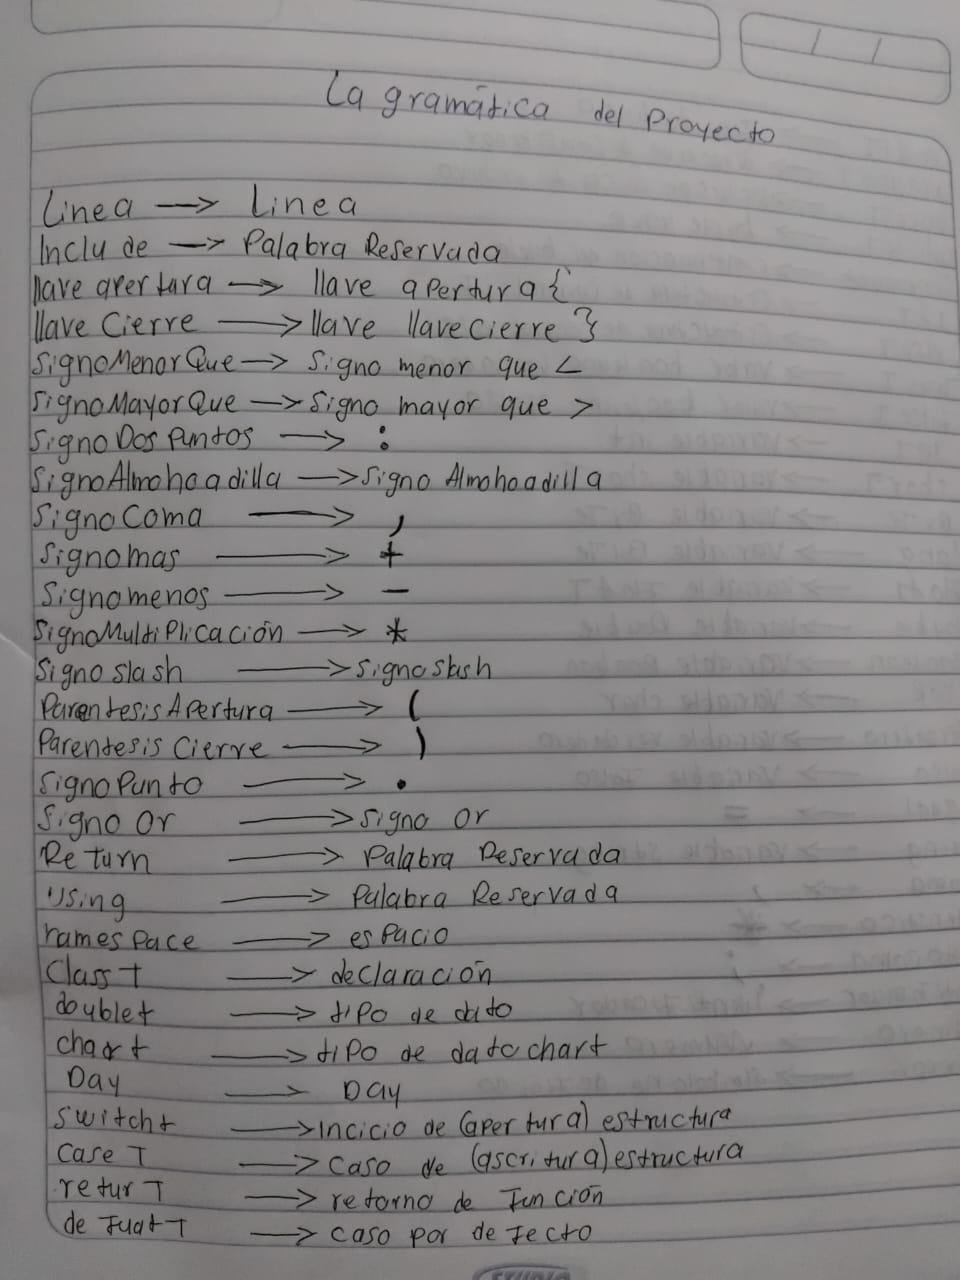 La gramática del Proyecto
Linea → Linea
Inclu de → Palabra Reservada
llave apertura → llave apertura {
llave Cierre → llave llave cierre }
SignoMenorQue → Signo menor que <
SignoMayorQue → Signo mayor que >
Signo Dos Puntos → :
SignoAlmohoadilla → Signo Almohoadilla
Signo Coma → ,
Signomas → +
Signomenos → -
SignoMultiPlicación → *
Signo slash → signo slash
ParentesisApertura → (
Parentesis Cierre → )
Signo Punto → .
Signo Or → signo or
Return → Palabra Reservada
Using → Palabra Reservada
names Pace → espacio
Class T → declaración
doublet → tipo de dato
chart → tipo de dato chart
Day → Day
Switcht → Incicio de (apertura) estructura
Case T → Caso de (ascritura) estructura
retur T → retorno de Función
de Fuat T → caso por defecto